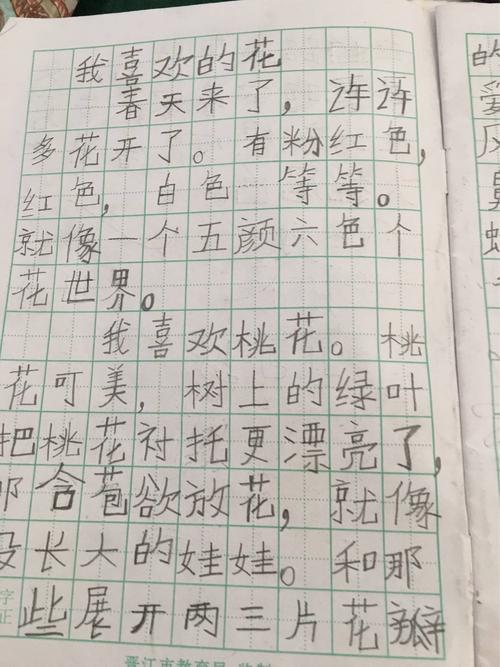 我喜欢的花
春天来了，许许
多花开了。有粉红色，
红色，白色 等等。
就像一个五颜六色个
花世界。
我喜欢桃花。桃
花可美，树上的绿叶
把桃花衬托更漂亮了，
那含苞欲放花，就像
没长大的娃娃。和那
些展开两三片花瓣
晋江市教育局